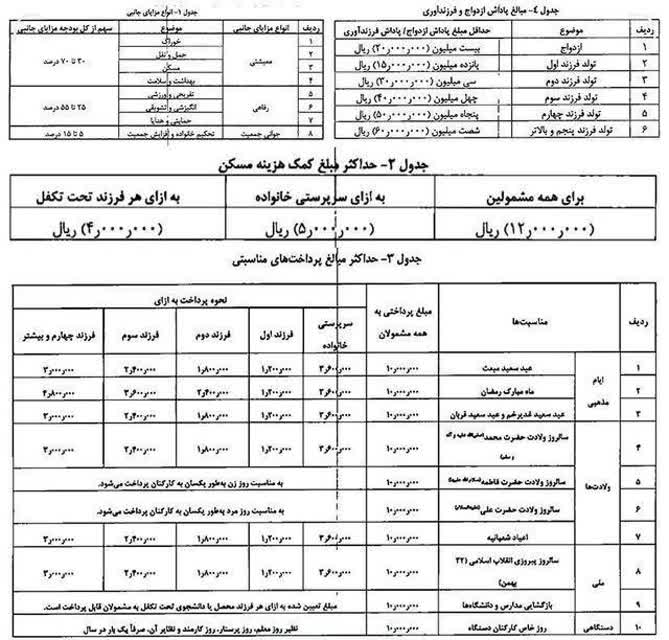 جدول ۱- انواع مزایای جانبی
ردیف | موضوع | انواع مزایای جانبی | سهم از کل بودجه مزایای جانبی
۱ | خوراک | معیشتی | ۳۰ تا ۷۰ درصد
۲ | حمل و نقل
۳ | مسکن
۴ | بهداشت و سلامت
۵ | تفریحی و ورزشی | رفاهی | ۲۵ تا ۵۵ درصد
۶ | انگیزشی و تشویقی
۷ | حمایتی و هدایا
۸ | تحکیم خانواده و افزایش جمعیت | جوانی جمعیت | ۵ تا ۱۵ درصد
جدول ۴- مبالغ پاداش ازدواج و فرزندآوری
ردیف | موضوع | حداقل مبلغ پاداش ازدواج/ پاداش فرزندآوری
۱ | ازدواج | بیست میلیون (۲۰٫۰۰۰٫۰۰۰) ریال
۲ | تولد فرزند اول | پانزده میلیون (۱۵٫۰۰۰٫۰۰۰) ریال
۳ | تولد فرزند دوم | سی میلیون (۳۰٫۰۰۰٫۰۰۰) ریال
۴ | تولد فرزند سوم | چهل میلیون (۴۰٫۰۰۰٫۰۰۰) ریال
۵ | تولد فرزند چهارم | پنجاه میلیون (۵۰٫۰۰۰٫۰۰۰) ریال
۶ | تولد فرزند پنجم و بالاتر | شصت میلیون (۶۰٫۰۰۰٫۰۰۰) ریال
جدول ۲- حداکثر مبلغ کمک هزینه مسکن
برای همه مشمولین | به ازای سرپرستی خانواده | به ازای هر فرزند تحت تکفل
(۱۲٫۰۰۰٫۰۰۰) ریال | (۵٫۰۰۰٫۰۰۰) ریال | (۴٫۰۰۰٫۰۰۰) ریال
جدول ۳- حداکثر مبالغ پرداخت‌های مناسبتی
ردیف | مناسبت‌ها | مبلغ پرداختی به همه مشمولان | نحوه پرداخت به ازای
سرپرستی خانواده | فرزند اول | فرزند دوم | فرزند سوم | فرزند چهارم و بیشتر
ایام مذهبی
۱ | عید سعید مبعث | ۱۰٫۰۰۰٫۰۰۰ | ۳٫۶۰۰٫۰۰۰ | ۱٫۲۰۰٫۰۰۰ | ۱٫۸۰۰٫۰۰۰ | ۲٫۴۰۰٫۰۰۰ | ۳٫۰۰۰٫۰۰۰
۲ | ماه مبارک رمضان | ۱۰٫۰۰۰٫۰۰۰ | ۳٫۶۰۰٫۰۰۰ | ۱٫۲۰۰٫۰۰۰ | ۲٫۴۰۰٫۰۰۰ | ۳٫۶۰۰٫۰۰۰ | ۴٫۸۰۰٫۰۰۰
۳ | عید سعید غدیرخم و عید سعید قربان | ۱۰٫۰۰۰٫۰۰۰ | ۳٫۶۰۰٫۰۰۰ | ۱٫۲۰۰٫۰۰۰ | ۱٫۸۰۰٫۰۰۰ | ۲٫۴۰۰٫۰۰۰ | ۳٫۰۰۰٫۰۰۰
ولادت‌ها
۴ | سالروز ولادت حضرت محمد | ۱۰٫۰۰۰٫۰۰۰ | ۳٫۶۰۰٫۰۰۰ | ۱٫۲۰۰٫۰۰۰ | ۱٫۸۰۰٫۰۰۰ | ۲٫۴۰۰٫۰۰۰ | ۳٫۰۰۰٫۰۰۰
۵ | سالروز ولادت حضرت فاطمه | ۱۰٫۰۰۰٫۰۰۰ | به مناسبت روز زن به‌طور یکسان به کارکنان پرداخت می‌شود.
۶ | سالروز ولادت حضرت علی | ۱۰٫۰۰۰٫۰۰۰ | به مناسبت روز مرد به‌طور یکسان به کارکنان پرداخت می‌شود.
۷ | اعیاد شعبانیه | ۱۰٫۰۰۰٫۰۰۰ | ۳٫۶۰۰٫۰۰۰ | ۱٫۲۰۰٫۰۰۰ | ۱٫۸۰۰٫۰۰۰ | ۲٫۴۰۰٫۰۰۰ | ۳٫۰۰۰٫۰۰۰
ملی
۸ | سالروز پیروزی انقلاب اسلامی (۲۲ بهمن) | ۱۰٫۰۰۰٫۰۰۰ | ۳٫۶۰۰٫۰۰۰ | ۱٫۲۰۰٫۰۰۰ | ۱٫۸۰۰٫۰۰۰ | ۲٫۴۰۰٫۰۰۰ | ۳٫۰۰۰٫۰۰۰
۹ | بازگشایی مدارس و دانشگاه‌ها | ۱۰٫۰۰۰٫۰۰۰ | مبلغ تعیین شده به ازای هر فرزند محصل یا دانشجوی تحت تکفل به مشمولان قابل پرداخت است.
۱۰ | دستگاهی | روز خاص کارکنان دستگاه | ۱۰٫۰۰۰٫۰۰۰ | نظیر روز معلم، روز پرستار، روز کارمند و نظایر آن، صرفاً یک بار در سال